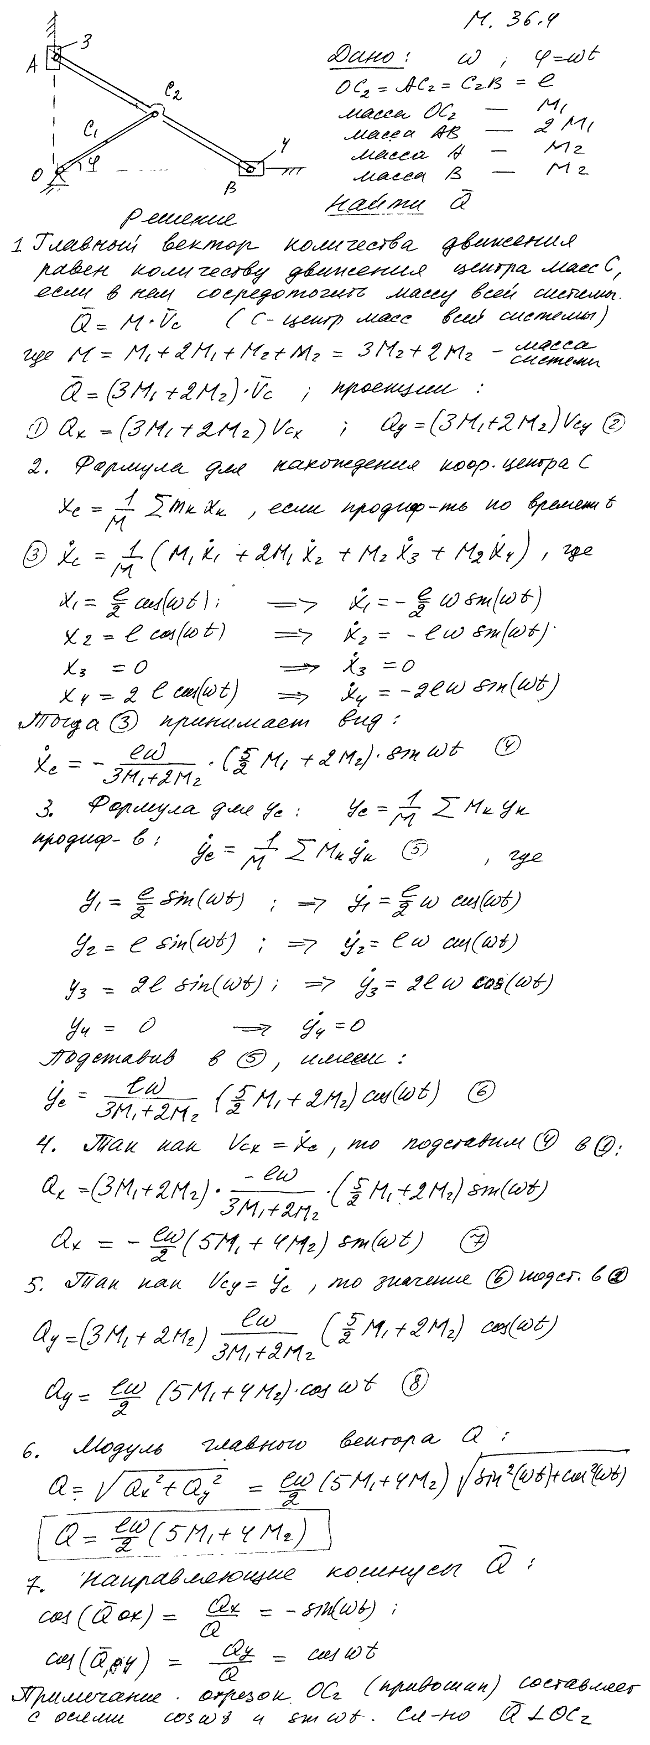 М. 36.4
Дано: ω ; φ=ωt
OC₂ = AC₂ = C₂B = ℓ
масса OC₂ — M₁
масса AB — 2M₁
масса A — M₂
масса B — M₂
Найти Q̄
3
A
C₂
C₁
4
O
φ
B
Решение
1 Главный вектор количества движения
равен количеству движения центра масс C,
если в нем сосредоточить массу всей системы.
Q̄ = M·V̄c (C-центр масс всей системы)
где M = M₁+2M₁+M₂+M₂ = 3M₂+2M₂ - масса системы
Q̄ = (3M₁+2M₂)·V̄c ; проекции :
① Qx = (3M₁+2M₂)Vcx ; Qy = (3M₁+2M₂)Vcy ②
2. Формула для нахождения коор. центра C
xc = 1/M Σmк xк , если продиф-ть по времени t
③ ẋc = 1/M (M₁ẋ₁ + 2M₁ẋ₂ + M₂ẋ₃ + M₂ẋ₄) , где
x₁ = ℓ/2 cos(ωt); => ẋ₁ = -ℓ/2 ω sin(ωt)
x₂ = ℓ cos(ωt) => ẋ₂ = -ℓω sin(ωt)
x₃ = 0 => ẋ₃ = 0
x₄ = 2 ℓ cos(ωt) => ẋ₄ = -2ℓω sin(ωt)
Тогда ③ принимает вид :
ẋc = - ℓω/(3M₁+2M₂) · (5/2 M₁ + 2M₂)· sin ωt ④
3. Формула для yc : yc = 1/M Σ Mк yк
продиф-в : ẏc = 1/M Σ Mк ẏк ⑤ , где
y₁ = ℓ/2 sin(ωt) ; => ẏ₁ = ℓ/2 ω cos(ωt)
y₂ = ℓ sin(ωt) ; => ẏ₂ = ℓω cos(ωt)
y₃ = 2ℓ sin(ωt) ; => ẏ₃ = 2ℓω cos(ωt)
y₄ = 0 => ẏ₄ = 0
Подставив в ⑤, имеем :
ẏc = ℓω/(3M₁+2M₂) (5/2 M₁ + 2M₂) cos(ωt) ⑥
4. Так как Vcx = ẋc , то подставим ④ в ①:
Qx = (3M₁+2M₂) · -ℓω/(3M₁+2M₂) · (5/2 M₁+2M₂) sin(ωt)
Qx = - ℓω/2 (5M₁ + 4M₂) sin(ωt) ⑦
5. Так как Vcy = ẏc , то значение ⑥ подст. в ②
Qy = (3M₁+2M₂) ℓω/(3M₁+2M₂) (5/2 M₁+2M₂) cos(ωt)
Qy = ℓω/2 (5M₁+4M₂)·cos ωt ⑧
6. Модуль главного вектора Q :
Q = √(Qx²+Qy²) = ℓω/2 (5M₁+4M₂) √(sin²(ωt)+cos²(ωt))
Q = ℓω/2 (5M₁+4M₂)
7. Направляющие косинусы Q̄ :
cos(Q̄ ox) = Qx/Q = -sin(ωt) ;
cos(Q̄,oy) = Qy/Q = cos ωt
Примечание. отрезок OC₂ (кривошип) составляет
с осями cos ωt и sin ωt. Сл-но Q̄ ⊥ OC₂